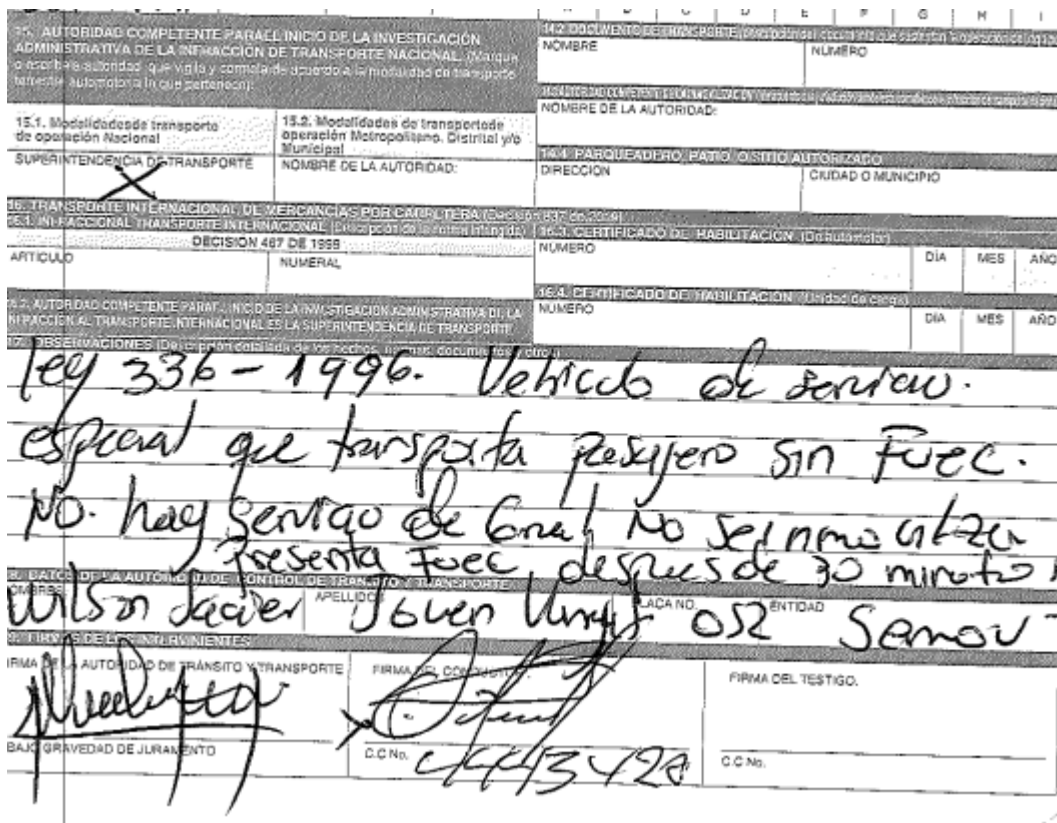 15. AUTORIDAD COMPETENTE PARA EL INICIO DE LA INVESTIGACIÓN
ADMINISTRATIVA DE LA INFRACCIÓN DE TRANSPORTE NACIONAL (Marque
o escriba la autoridad que vigila y controla de acuerdo a la modalidad de transporte
terrestre automotor a la que pertenece):
15.1. Modalidades de transporte
de operación Nacional
15.2. Modalidades de transporte de
operación Metropolitano, Distrital y/o
Municipal
SUPERINTENDENCIA DE TRANSPORTE
X
NOMBRE DE LA AUTORIDAD:
NOMBRE
NUMERO
NOMBRE DE LA AUTORIDAD:
14.4. PARQUEADERO, PATIO O SITIO AUTORIZADO
DIRECCION
CIUDAD O MUNICIPIO
16. TRANSPORTE INTERNACIONAL DE MERCANCÍAS POR CARRETERA (Decisión 837 de 2019)
16.1. INFRACCION AL TRANSPORTE INTERNACIONAL (Descripción de la norma infringida)
DECISION 467 DE 1999
ARTICULO
NUMERAL
16.3. CERTIFICADO DE HABILITACIÓN (Del automotor)
NUMERO
DÍA MES AÑO
16.2. AUTORIDAD COMPETENTE PARA EL INICIO DE LA INVESTIGACIÓN ADMINISTRATIVA DE LA
INFRACCION AL TRANSPORTE INTERNACIONAL ES LA SUPERINTENDENCIA DE TRANSPORTE
16.4. CERTIFICADO DE HABILITACIÓN (Unidad de carga)
NUMERO
DÍA MES AÑO
17. OBSERVACIONES (Descripción detallada de los hechos, normas, documentos y otros)
ley 336-1996. Vehiculo de servicio.
especial que transporta pasajero sin Fuec.
No. hay servicio de No se inmoviliza
Presenta Fuec despues de 30 minuto
18. DATOS DE LA AUTORIDAD DE CONTROL DE TRANSITO Y TRANSPORTE
NOMBRES
Wilson Javier
APELLIDOS
Joven
PLACA NO.
052
ENTIDAD
Semov
19. FIRMAS DE LOS INTERVINIENTES
FIRMA DE LA AUTORIDAD DE TRÁNSITO Y TRANSPORTE
BAJO GRAVEDAD DE JURAMENTO
FIRMA DEL CONDUCTOR.
C.C No. 4443428
FIRMA DEL TESTIGO.
C.C No.